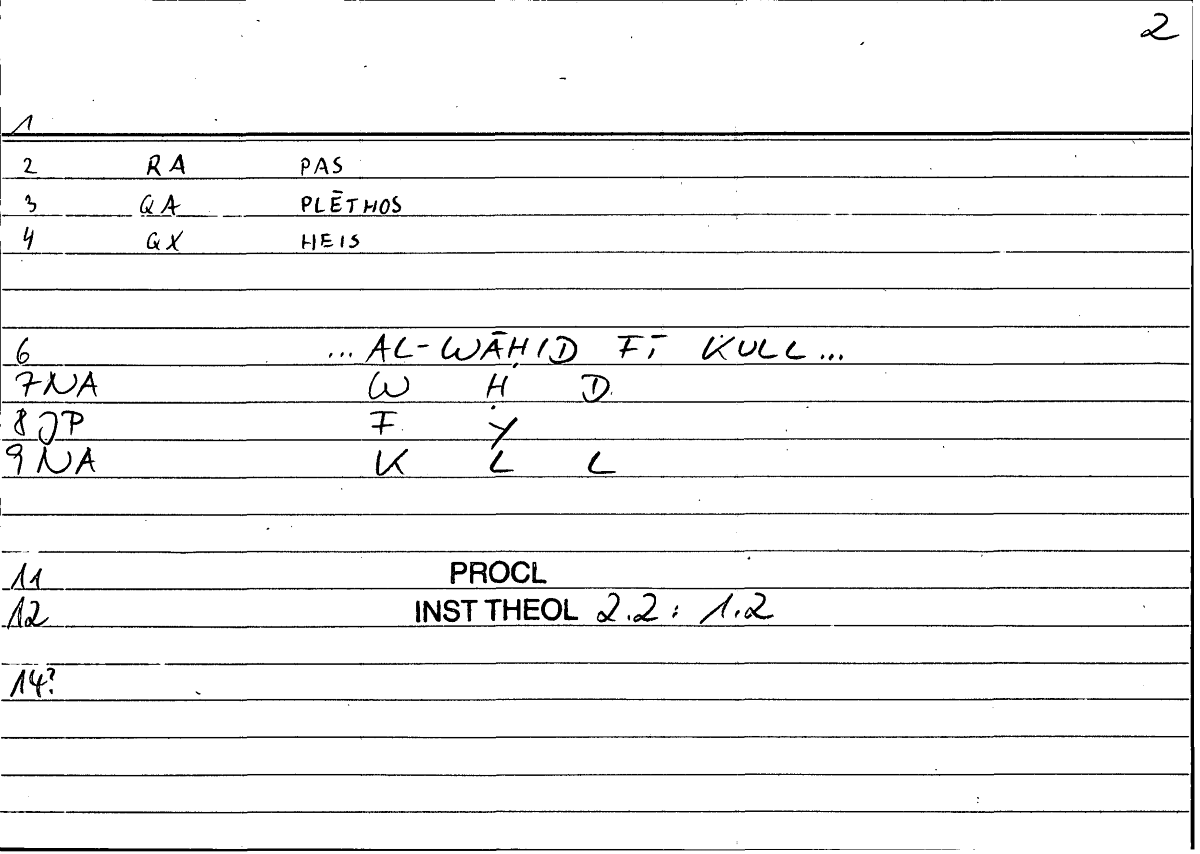 2
1
2 RA PAS
3 QA PLĒTHOS
4 QX HEIS
6 ... AL-WĀḤID FĪ KULL ...
7 NA W Ḥ D
8 JP F Y
9 NA K L L
11 PROCL
12 INST THEOL 2.2 : 1.2
14?